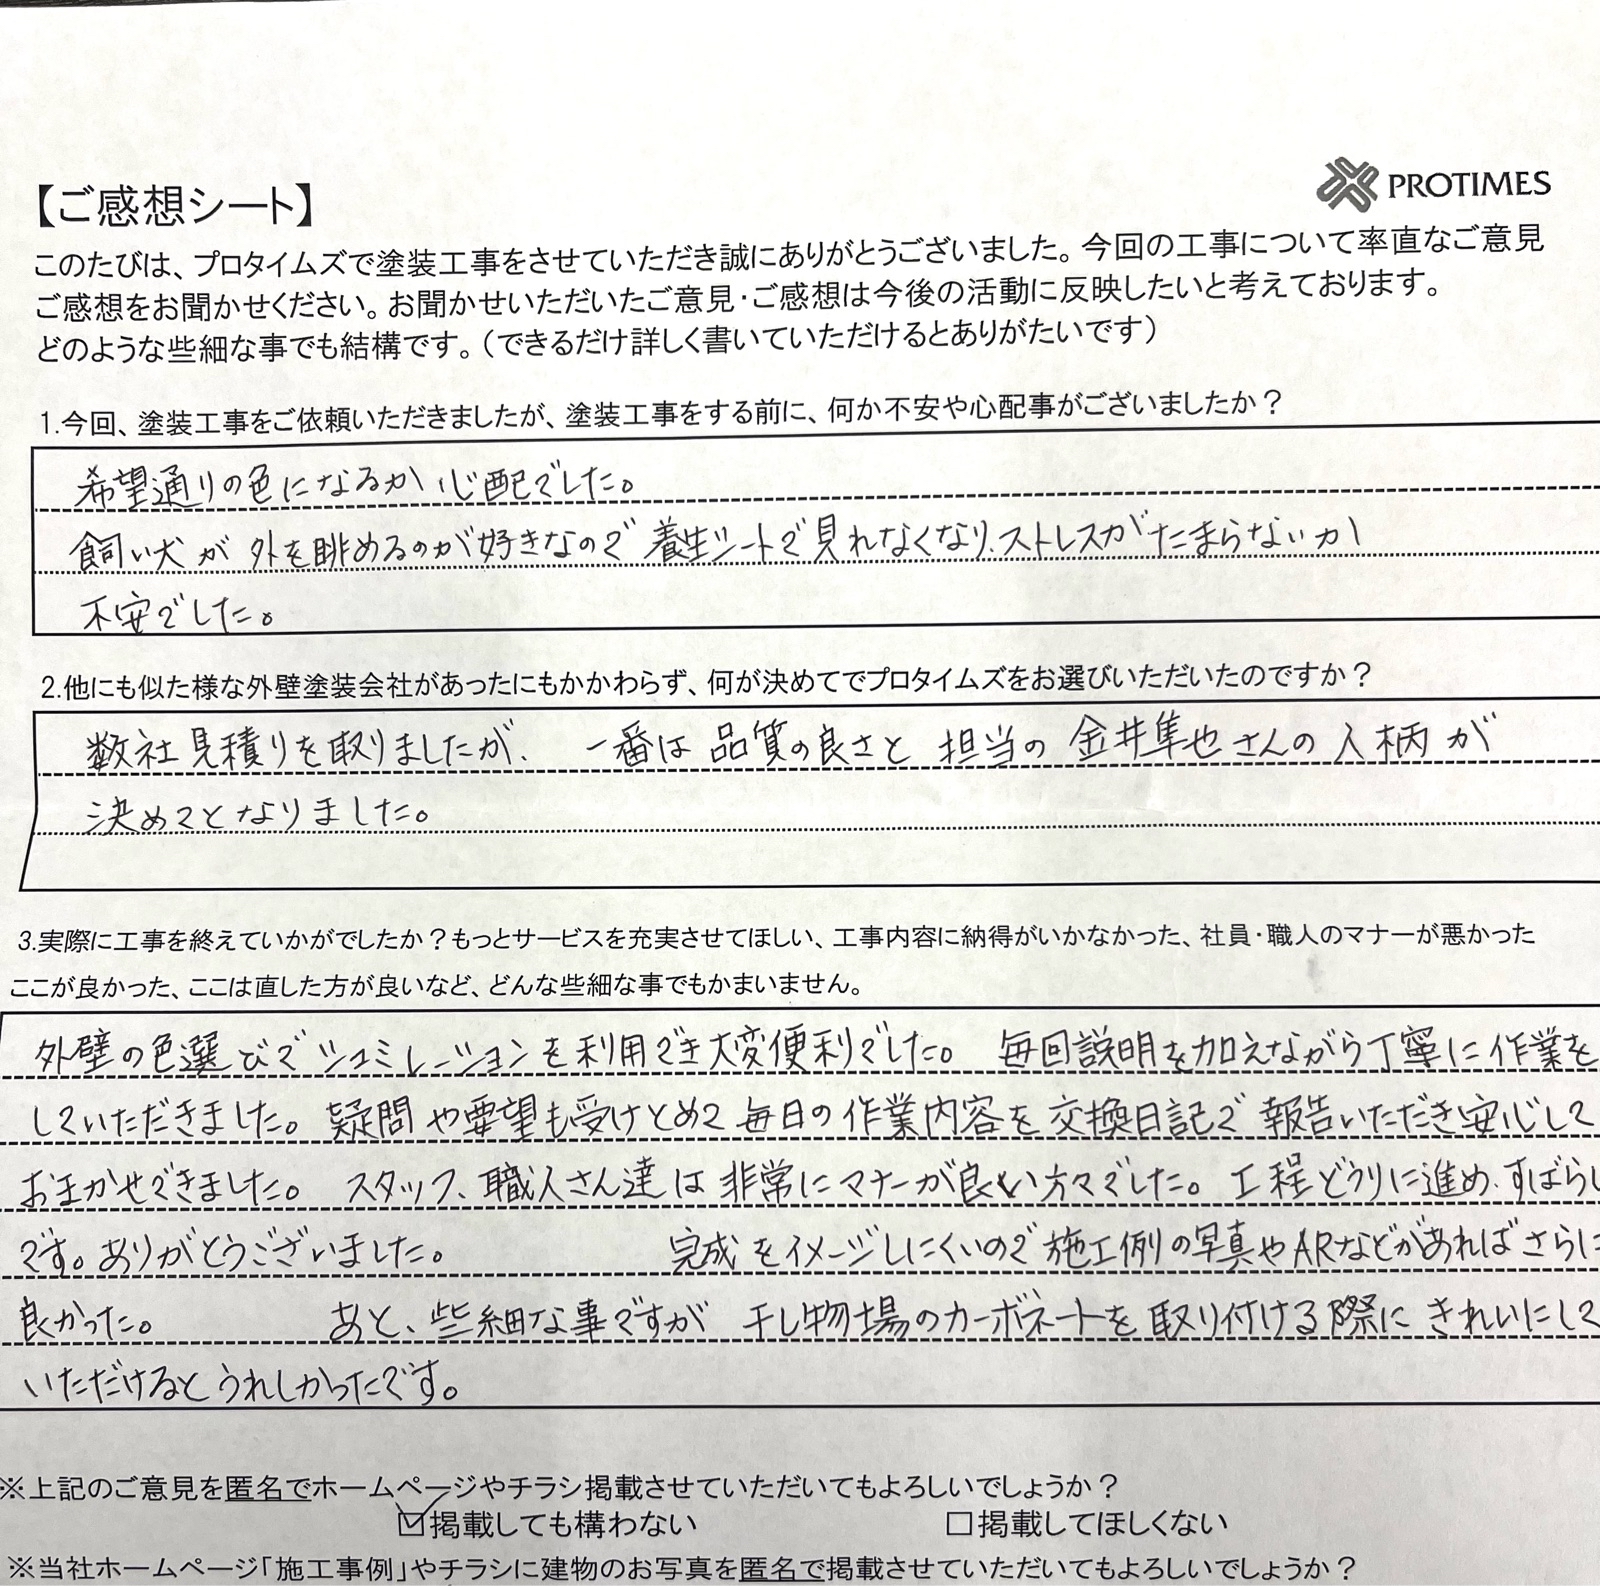 【ご感想シート】
PROTIMES
このたびは、プロタイムズで塗装工事をさせていただき誠にありがとうございました。今回の工事について率直なご意見
ご感想をお聞かせください。お聞かせいただいたご意見・ご感想は今後の活動に反映したいと考えております。
どのような些細な事でも結構です。（できるだけ詳しく書いていただけるとありがたいです）
1.今回、塗装工事をご依頼いただきましたが、塗装工事をする前に、何か不安や心配事がございましたか？
希望通りの色になるか心配でした。
飼い犬が外を眺めるのが好きなので養生シートで見れなくなり、ストレスがたまらないか
不安でした。
2.他にも似た様な外壁塗装会社があったにもかかわらず、何が決めてでプロタイムズをお選びいただいたのですか？
数社見積りを取りましたが、一番は品質の良さと担当の金井隼也さんの人柄が
決めてとなりました。
3.実際に工事を終えていかがでしたか？もっとサービスを充実させてほしい、工事内容に納得がいかなかった、社員・職人のマナーが悪かった
ここが良かった、ここは直した方が良いなど、どんな些細な事でもかまいません。
外壁の色選びでシュミレーションを利用でき大変便利でした。毎回説明を加えながら丁寧に作業を
していただきました。疑問や要望も受けとめて毎日の作業内容を交換日記で報告いただき安心して
おまかせできました。スタッフ、職人さん達は非常にマナーが良い方々でした。工程どうりに進め、すばらし
です。ありがとうございました。 完成をイメージしにくいので施工例の写真やARなどがあればさらに
良かった。 あと、些細な事ですが 干し物場のカーボネートを取り付ける際にきれいにして
いただけるとうれしかったです。
※上記のご意見を匿名でホームページやチラシ掲載させていただいてもよろしいでしょうか？
☑掲載しても構わない □掲載してほしくない
※当社ホームページ「施工事例」やチラシに建物のお写真を匿名で掲載させていただいてもよろしいでしょうか？